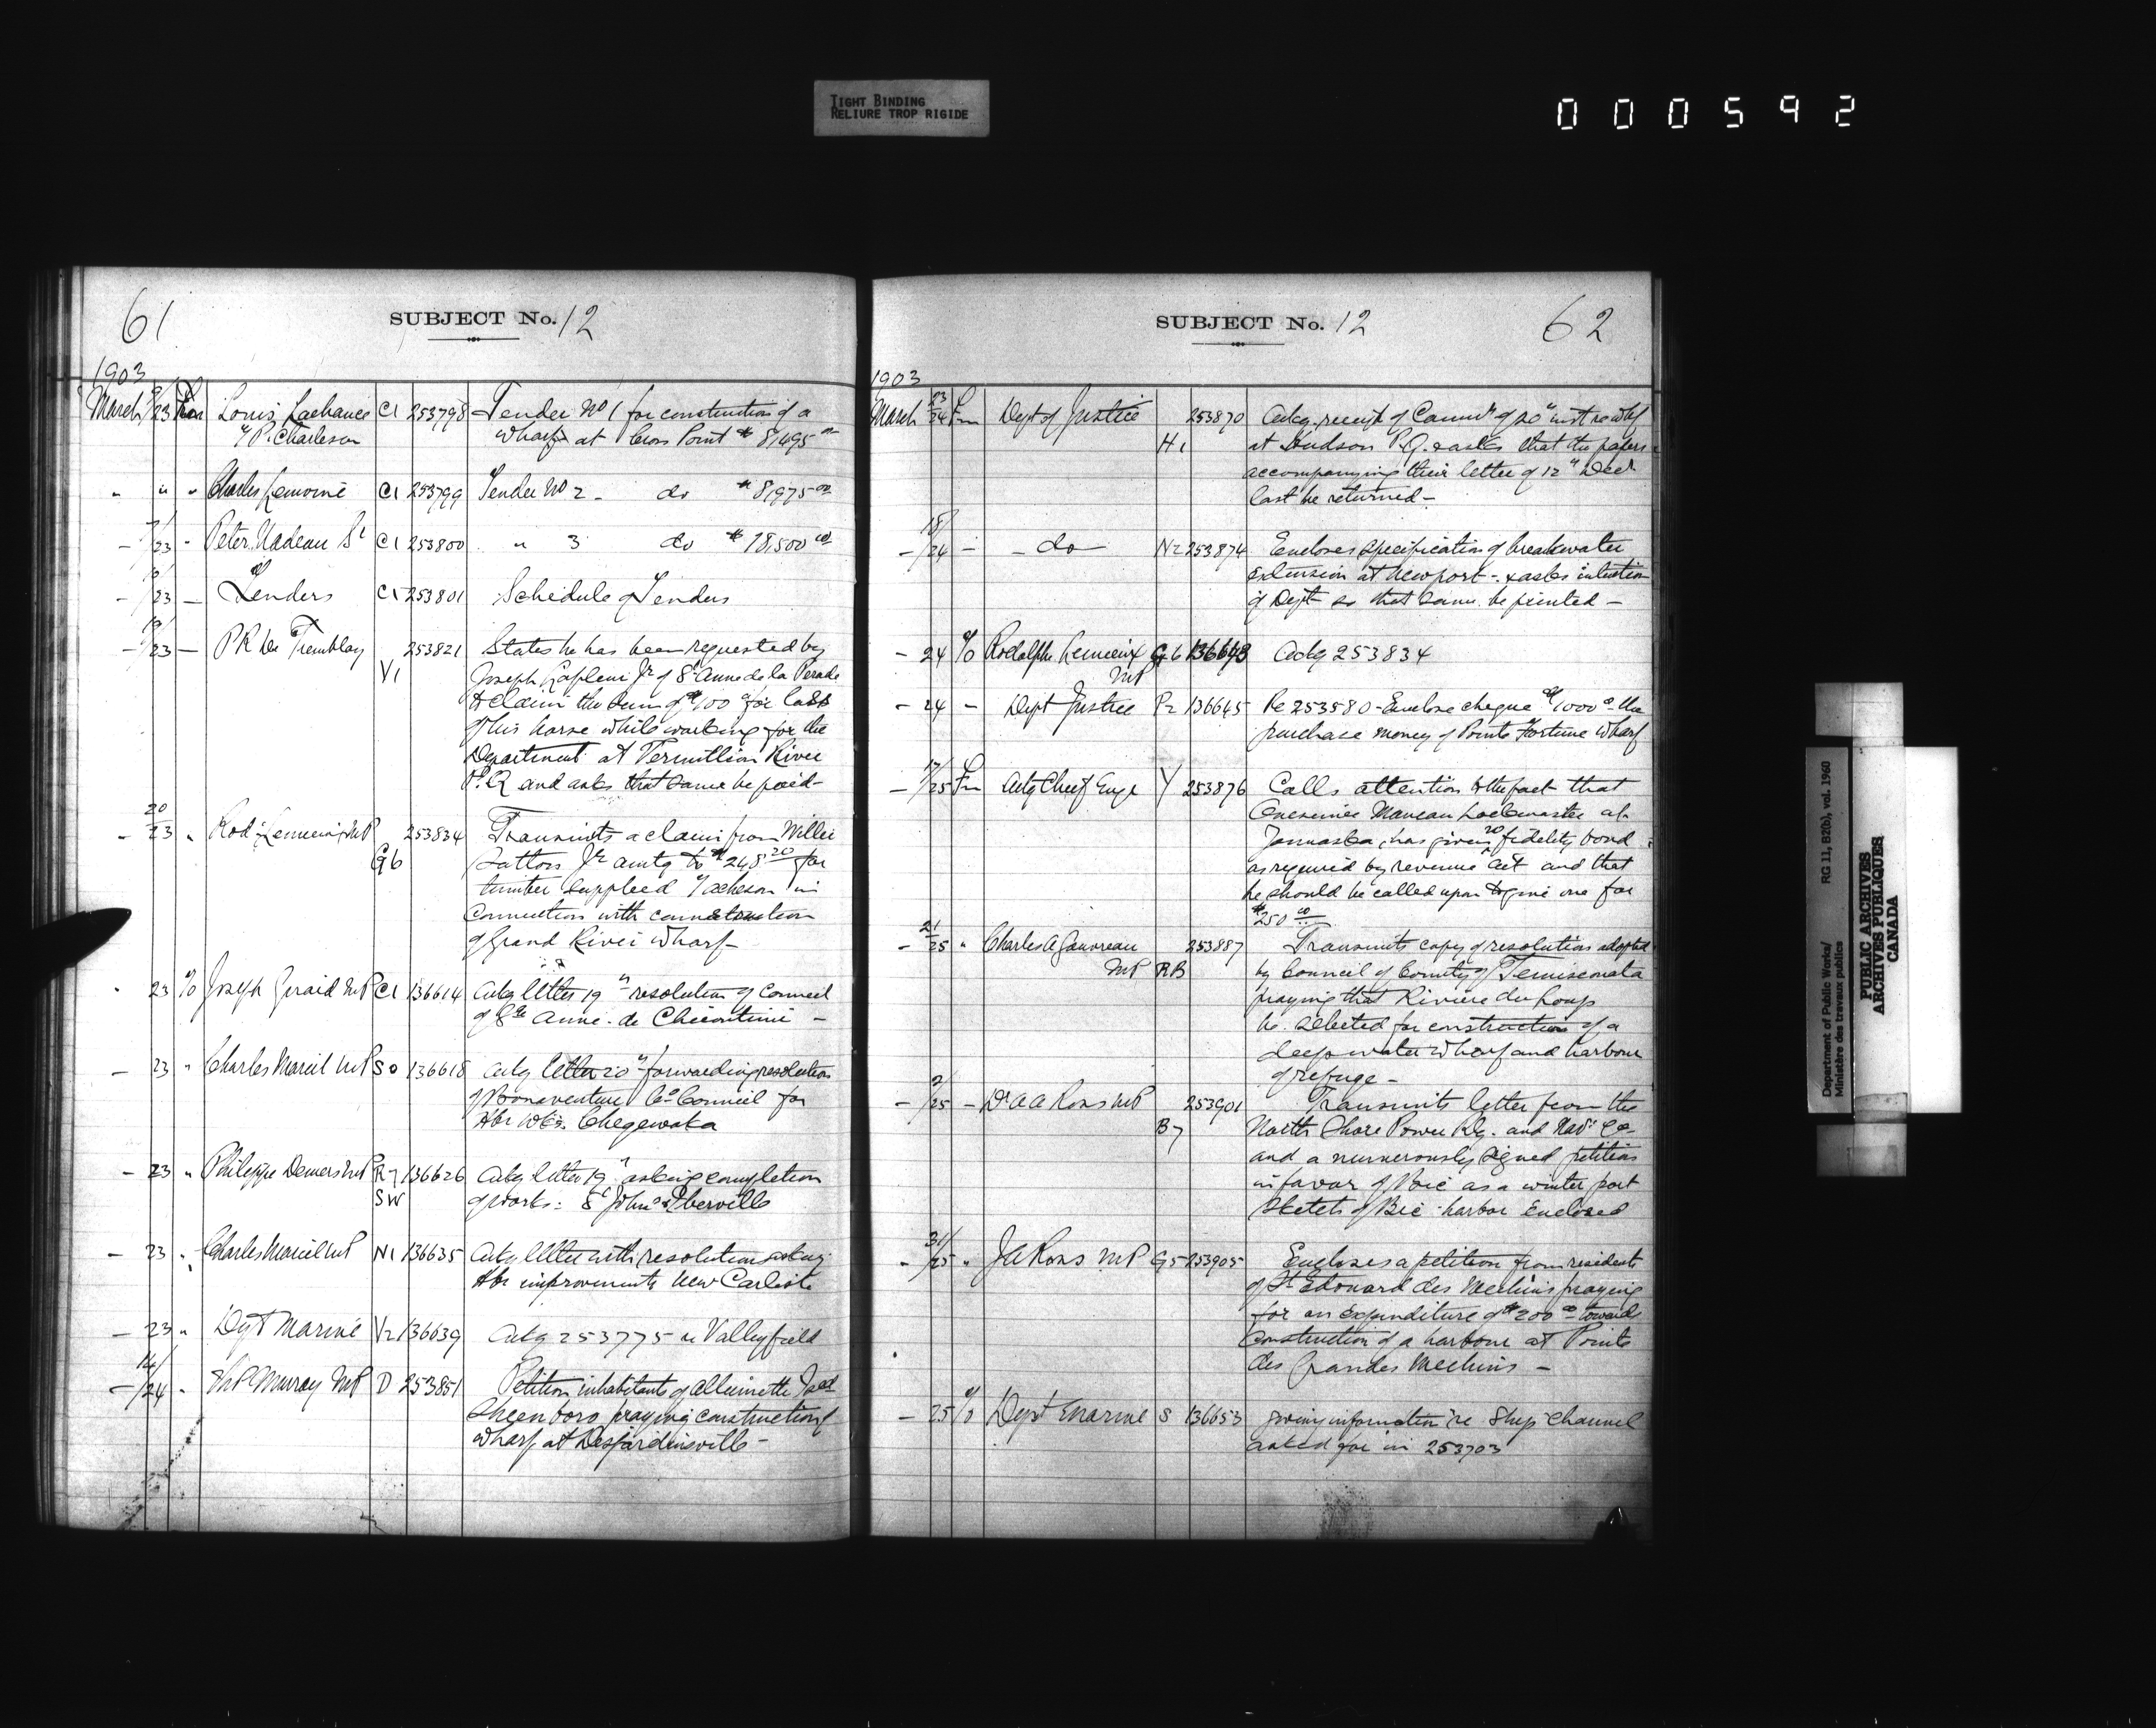 TIGHT BINDING
RELIURE TROP RIGIDE
000592
61
SUBJECT No. 12
1903
March 23 Louis Lachance C1 253798 Tender No 1 for construction of a
& P. Charleson wharf at Cross Point $8,495 00
" " " Charles Lemoine C1 253799 Tender No 2 - do $8,975 00
- 23 - Peter Nadeau Sr C1 253800 " 3 do $18,500 00
- 23 - Tenders C1 253801 Schedule of Tenders
- 23 - P R De Tremblay 253821 States he has been requested by
V1 Joseph Jr of St Anne de la Perade
to claim the sum of $100 for loss
of his horse while working for the
Department at Vermillion River
P.Q and asks that same be paid -
20
- 23 " Rod. Lemieux MP 253834 Transmits a claim from Willie
G6 Jr amtg to $248 20 for
timber supplied Acheson in
connection with construction
of Grand River wharf -
" 23 % Joseph Girard MP C1 136614 Ackg letter 19" resolution of Council
of Ste Anne de Chicoutimi -
- 23 " Charles Marcil MP SO 136618 Ackg letter 20" forwarding resolution
of Bonaventure Co Council for
Hbr Wks.
- 23 " Philippe Demers MP R7 136626 Ackg letter 19" asking completion
SW of works: St Johns & Iberville
- 23 " Charles Marcil MP N1 136635 Ackg letter with resolution asking
Hbr improvements New Carlisle
- 23 " Dept Marine V2 136639 Ackg 253775 re Valleyfield
14/
- 24 " Murray MP D 253851 Petition inhabitants of Allumette Isld
Sheenboro praying construction of
wharf at Desjardinsville -
SUBJECT No. 12
62
1903
23
March 24 Fm Dept of Justice 253870 Ackg. receipt of Commn of 20" inst re whf
H1 at Hudson P.Q. & asks that the papers
accompanying their letter of 12" Decr
last be returned -
18/
- 24 - - do - N2 253874 Encloses specification of breakwater
extension at Newport - & asks intention
of Dept so that same be printed -
- 24 % Rodolphe Lemieux G6 136643 Ackg 253834
MP
- 24 - Dept Justice P2 136645 Re 253580 - Enclose cheque $1000 00 the
purchase money of Pointe Fortune Wharf
17/
- 25 Fm Actg Chief Engr Y 253876 Calls attention to the fact that
Onesime Lockmaster at
Yamaska, has given no fidelity bond
as required by revenue act and that
he should be called upon to give one for
$250 00
21
- 25 " Charles A Gauvreau 253887 Transmits copy of resolution adopted
MP RB by Council of County of Temiscouata
praying that Riviere du Loup
be selected for construction of a
deep water wharf and harbour
of refuge -
- 25 - Dr A A Ross MP 253901 Transmits letter from the
B7 North Shore Power Ry. and Navn Co
and a numerously signed petition
in favor of Bic as a winter port
Sketch of Bic harbor Enclosed
- 25 " J A Ross MP G5 253905 Encloses a petition from residents
of St Edouard des Mechins praying
for an expenditure of $200 00 towards
construction of a harbour at Pointe
des Grandes Mechins -
- 25 % Dept Marine S 136653 Giving information re Ship Channel
asked for in 253703
Department of Public Works/
Ministère des travaux publics
RG 11, B2(b), vol. 1960
PUBLIC ARCHIVES
ARCHIVES PUBLIQUES
CANADA